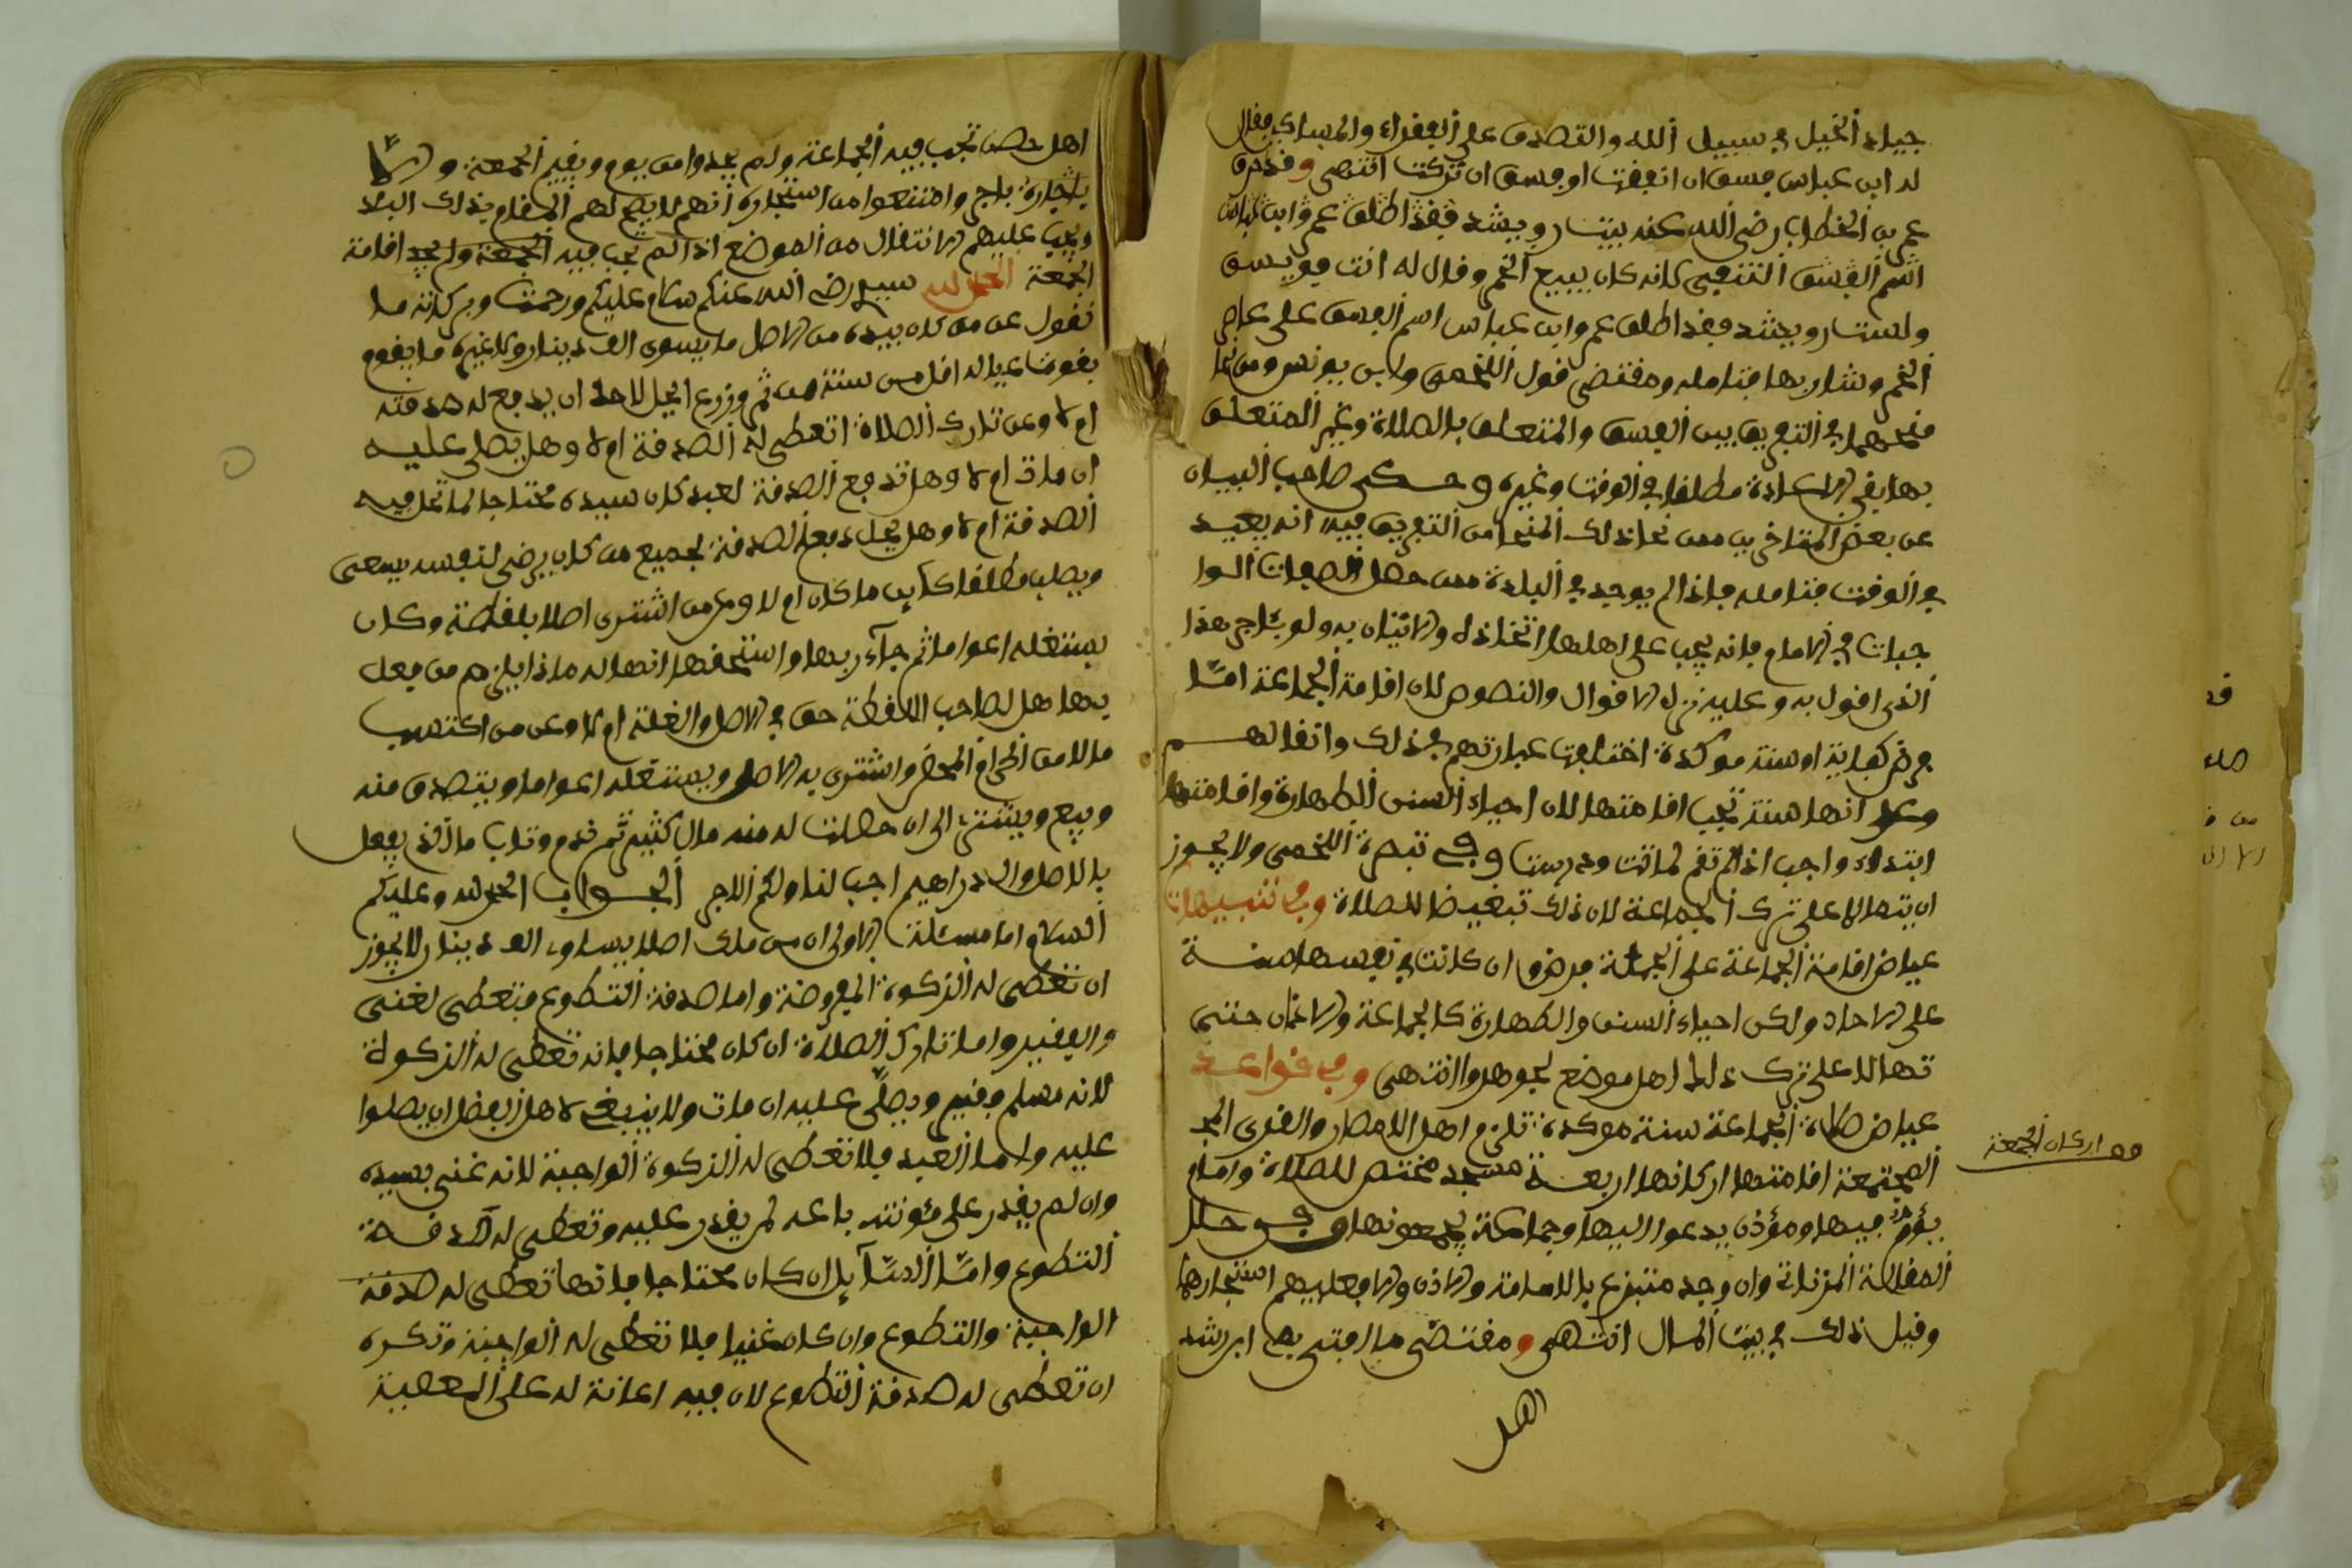 جياد الخيل في سبيل الله والتصدق على الفقراء والمساكين فقال
له ابن عباس فسق ان انفقت او فسق ان تركت انتهى وقد حرق
عمر بن الخطاب رضي الله عنه بيت رويشد فقد اطلق عمر وابن عباس
اسم الفسق الثقفي كانه كان يبيع الخمر وقال له انت فويسق
ولست رويشد فقد اطلق عمر وابن عباس اسم الفسق على عاصر
الخمر وشاربها فتامله ومقتضى قول اللخمي وابن يونس ومن نحا
منحهما في التفريق بين الفسق والمتعلق بالصلاة وغير المتعلق
بها نفي الاعادة مطلقا في الوقت وغيره وحكى صاحب البيان
عن بعض المتاخرين ممن نحا ذلك المنحا من التفريق فيه انه يعيد
في الوقت فتامله فاذا لم يوجد في البلدة من حصل الصفات الوا
جبات في الامام فانه يجب على اهلها اتخاذه والاتيان به ولو باجر هذا
الذي اقول به وعليه تدل الاقوال والنصوص لان اقامة الجماعة اما
فرض كفاية او سنة موكدة اختلفت عبارتهم في ذلك واتفاقهم
وعلى انها سنة تجب اقامتها لان احياء السنن الظاهرة واقامتها
ابتداء واجب اذا لم تقم لماتت ودرست وفي تبصرة اللخمي ولا يجوز
ان يتمالا على ترك الجماعة لان ذلك تبغيضا للصلاة وفي تنبيهات
عياض اقامة الجماعة على الجملة فرض وان كانت في نفسها سنة
على الاحاد ولكن احياء السنن الظاهرة كالجماعة والاذان حتى
تمالا على ترك ذلك اهل موضع لجوهدوا انتهى وفي قواعد
عياض صلاة الجماعة سنة موكدة تلزم اهل الامصار والقرى المجـ
المجتمعة اقامتها اركانها اربعة مسجد مختص للصلاة وامام
يؤم فيها ومؤذن يدعوا اليها وجماعة يجمعونها وفي حلل
المقالة المزناتة وان وجد متبرع بالامامة والاذن والا فعليهم استئجارها
وقيل ذلك في بيت المال انتهى ومقتضى ما افتى به ابن رشد
اهل
اركان الجمعة
اهل حصن تجب فيه الجماعة ولم يجدوا من يؤم ويقيم الجمعة و
باجارة باجر وامتنعوا من استئجاره انهم لا يصح لهم المقام بذلك البلد
ويجب عليهم الانتقال من الموضع اذا لم تجب فيه الجمعة ولم يجد اقامة
الجمعة الحمد لله سيدي رضي الله عنكم سلام عليكم ورحمت وبركاته ما
نقول عن من كان بيده من الاصل ما يسوى الف دينار ولا غيره ما يقوم
بقوت عياله اقل من سنة من ثمر وزرع ايحل لاحد ان يدفع له صدقته
ام لا وعن تارك الصلاة اتعطى له الصدقة ام لا وهل يصلى عليه
ان مات ام لا وهل تدفع الصدقة لعبد كان سيده محتاجا لما تحل فيه
الصدقة ام لا وهل يحل دفع الصدقة لجميع من كان يرضى لنفسه يسعى
ويطلب مطلقا كاين ما كان ام لا وعن من اشترى اصلا بلفطة وكان
يستغله اعواما ثم جاء ربها واستحقها انها له ماذا يلزم من فعل
بها هل لصاحب اللفطة حق في الاصل والغلة ام لا وعن من اكتسب
مالا من الحرام المحض واشترى به الاصل ويستغله اعواما ويتصدق منه
ويبيع ويشتري الى ان حصلت له منه مال كثير ثم ندم وتاب ماذا يفعل
بالاصل والدراهيم اجب لنا ولكم الاجر الجواب الحمد لله وعليكم
السلام اما مسئلة الاولى ان من ملك اصلا يساوي الف دينار لا يجوز
ان تعطى له الزكوة المفروضة واما صدقة التطوع فتعطى لغني
والفقير واما تارك الصلاة ان كان محتاجا فانه تعطى له الزكوة
لانه مسلم فقير ويصلى عليه ان مات ولا ينبغي لاهل الفضل ان يصلوا
عليه واما العبد فلا تعطى له الزكوة الواجبة لانه غني بسيده
وان لم يقدر على مؤنته باعه لمن يقدر عليه وتعطى له صدقة
التطوع واما السائل ان كان محتاجا فانها تعطى له صدقة
الواجبة والتطوع وان كان غنيا فلا تعطى له الواجبة وتكره
ان تعطى له صدقة التطوع لان فيه اعانة له على المعصية